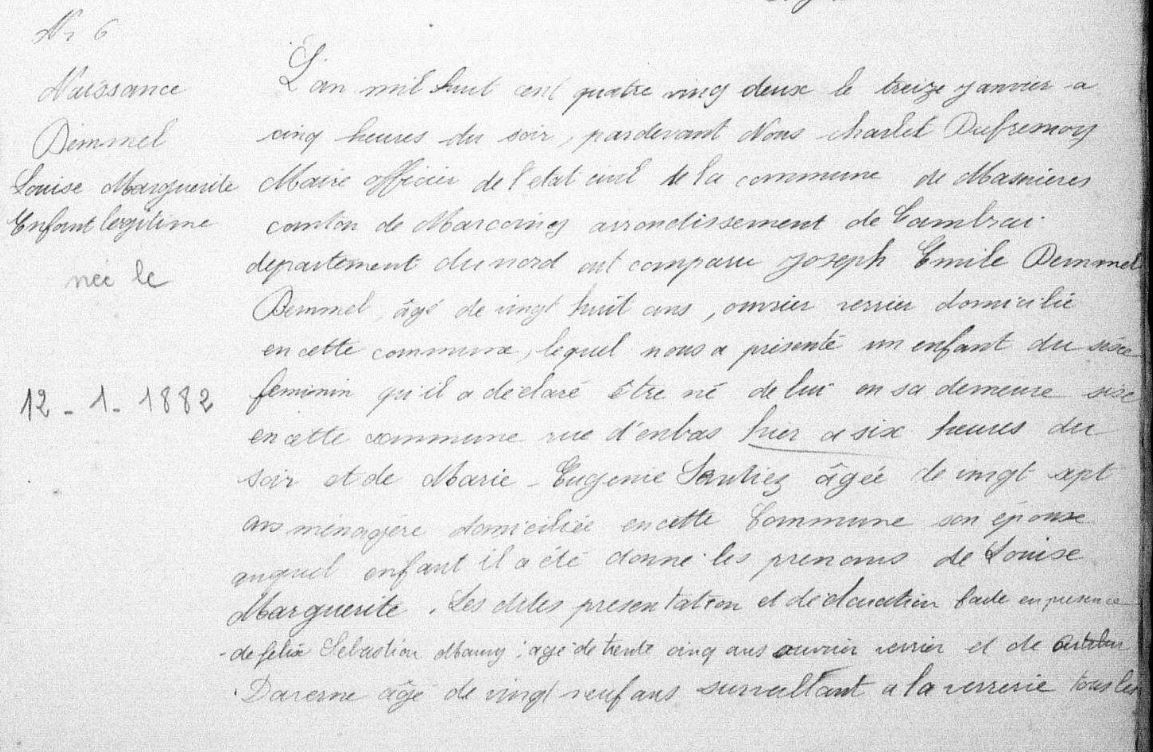 Nr 6
Naissance
Demmel
Louise Marguerite
Enfant legitime
née le
12 - 1 - 1882
L'an mil huit cent quatre vingt deux le treize janvier a
cinq heures du soir, pardevant Nous charlet Dufremoy
Maire officier de l'etat civil de la commune de Masnieres
canton de Marcoing arrondissement de Cambrai
departement du nord ont comparu joseph Emile Demmel
Demmel, âgé de vingt huit ans, ouvrier verrier domicilié
en cette commune, lequel nous a présenté un enfant du sexe
feminin qu'il a déclaré être né de lui en sa demeure sise
en cette commune rue d'enbas hier a six heures du
soir et de Marie - Eugenie âgée de vingt sept
ans ménagère domiciliée en cette Commune son épouse
auquel enfant il a été donné les prenoms de Louise
Marguerite. Les dites presentation et declaration faite en presence
de felix Sebastien Maury, agé de trente cinq ans ouvrier verrier et de
Daverne âgé de vingt neuf ans surveillant a la verrerie tous les